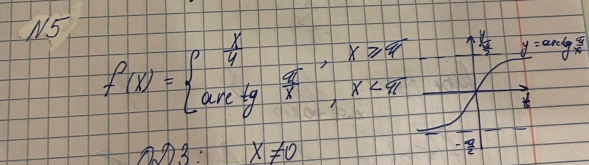 N5
f(x) = { x/4 , x ⩾ π
arctg π/x , x < π
y
π/2
y = arctg π/x
x
-π/2
ОДЗ: x ≠ 0